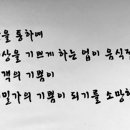 을 통하여
상을 기쁘게 하는 업이 음식
객의 기쁨이
밀가의 기쁨이 되기를 소망하